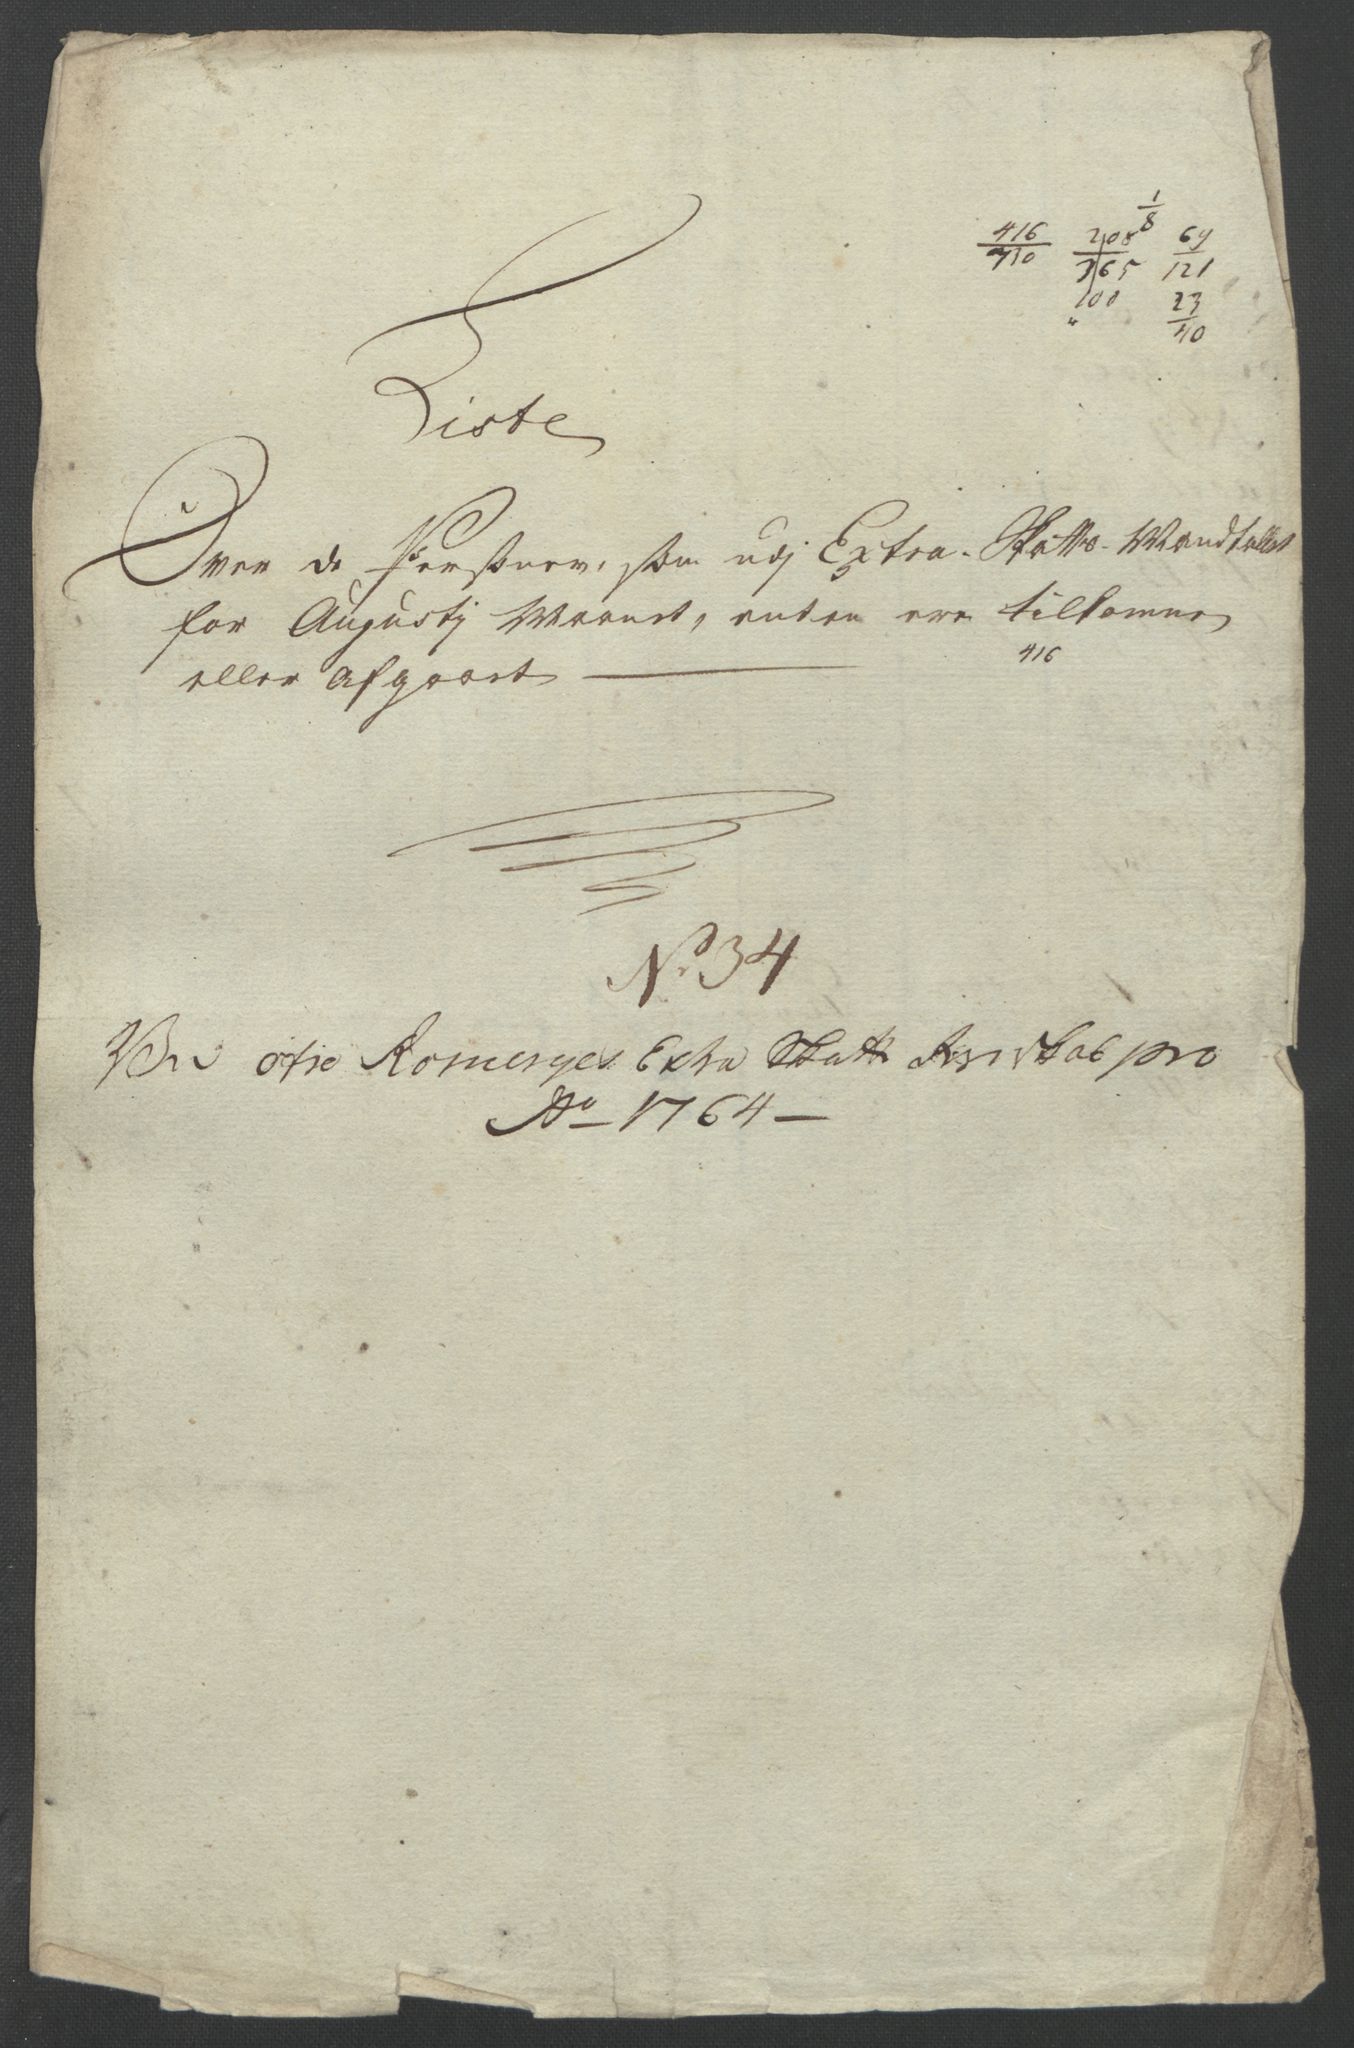 1/8
416 208 69
710 365 121
100 23
" 40
Liste
Over de Persohner, som udj Extra-Skatte-Mandtallet
for Augustij Maanet, enten ere tilkomne
eller afgaaet
416
No 34
Ved øfre Romeriges Extra Skatte Regnskab pro
Ao 1764